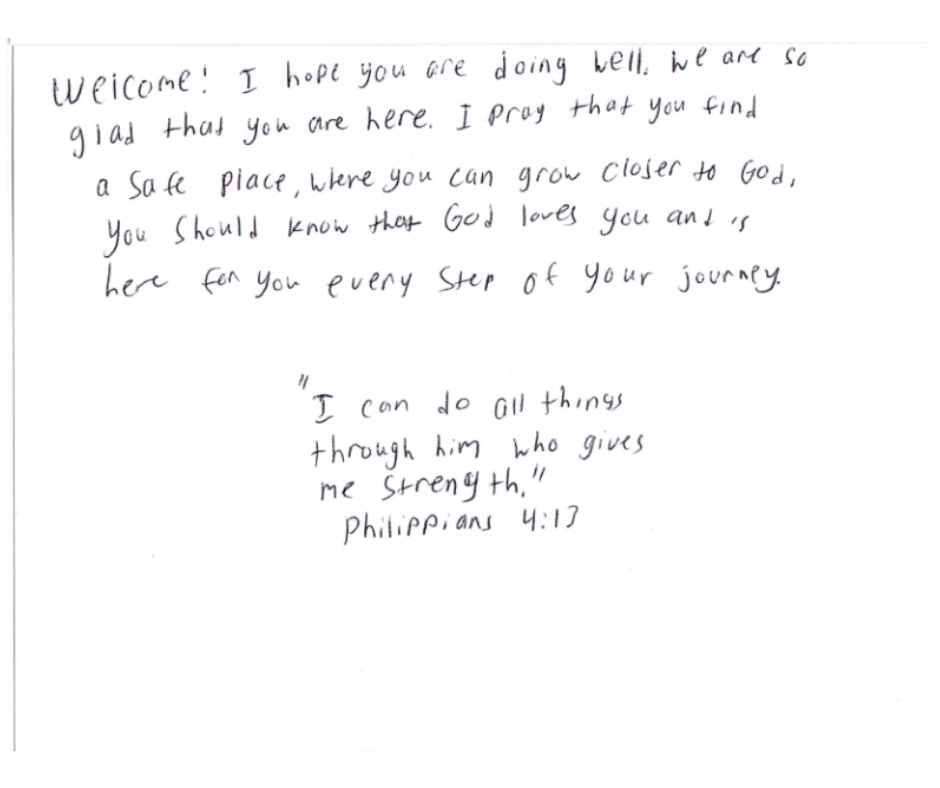 Welcome! I hope you are doing well. We are so
glad that you are here. I pray that you find
a safe place, where you can grow closer to God,
you should know that God loves you and is
here for you every step of your journey.
"I can do all things
through him who gives
me strength."
Philippians 4:13